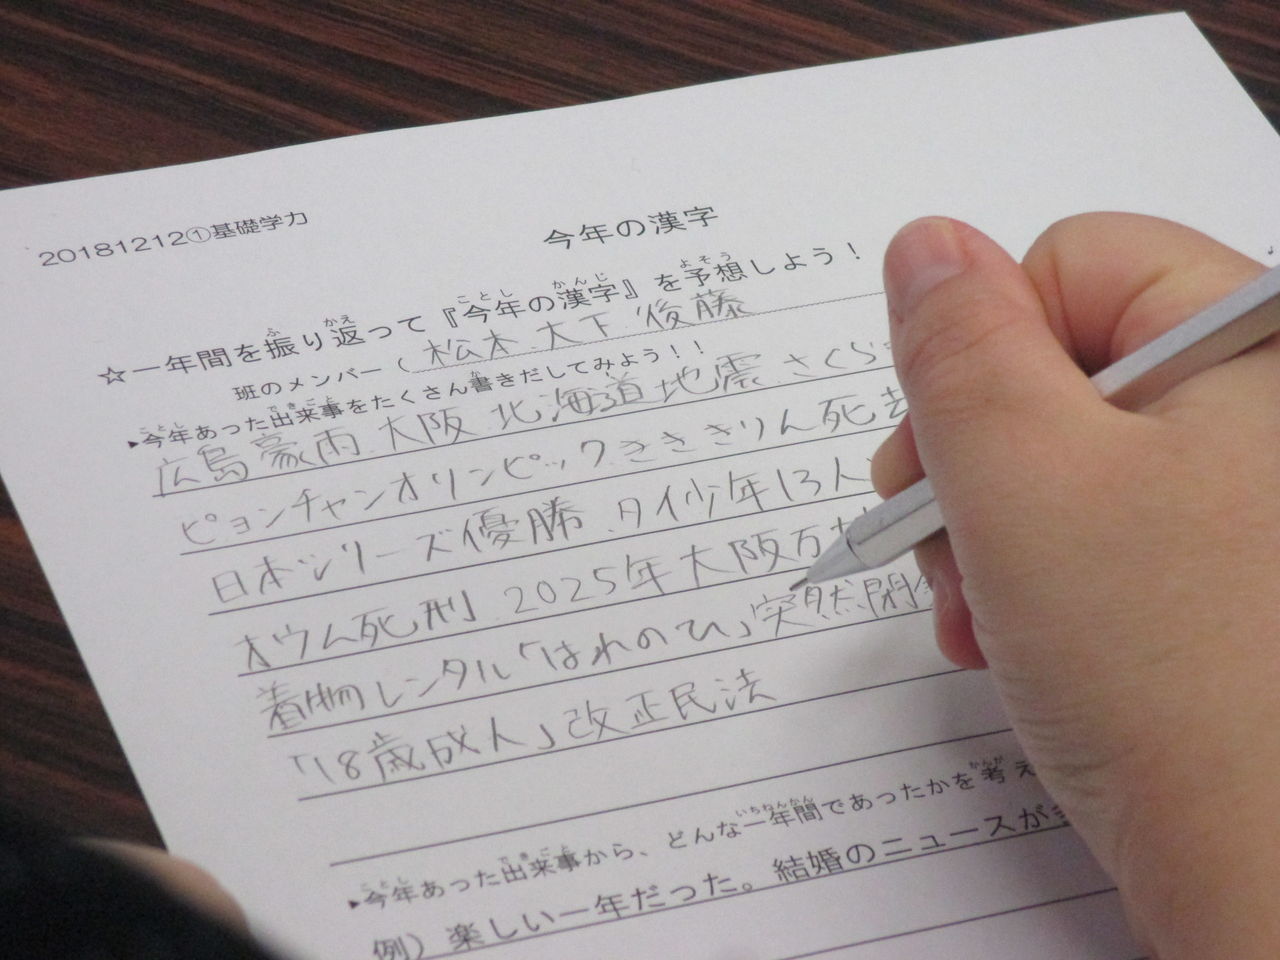 20181212①基礎学力
今年の漢字
☆一年間を振り返って『今年の漢字』を予想しよう！
班のメンバー（ 松本 大下 後藤
▶今年あった出来事をたくさん書きだしてみよう！！
広島豪雨 大阪 北海道地震 さくら
ピョンチャンオリンピック ききききりん死去
日本シリーズ優勝 タイ少年13人
オウム死刑 2025年大阪万
着物レンタル「はれのひ」突然閉
「18歳成人」改正民法
▶今年あった出来事から、どんな一年間であったかを考え
例）楽しい一年だった。結婚のニュースが